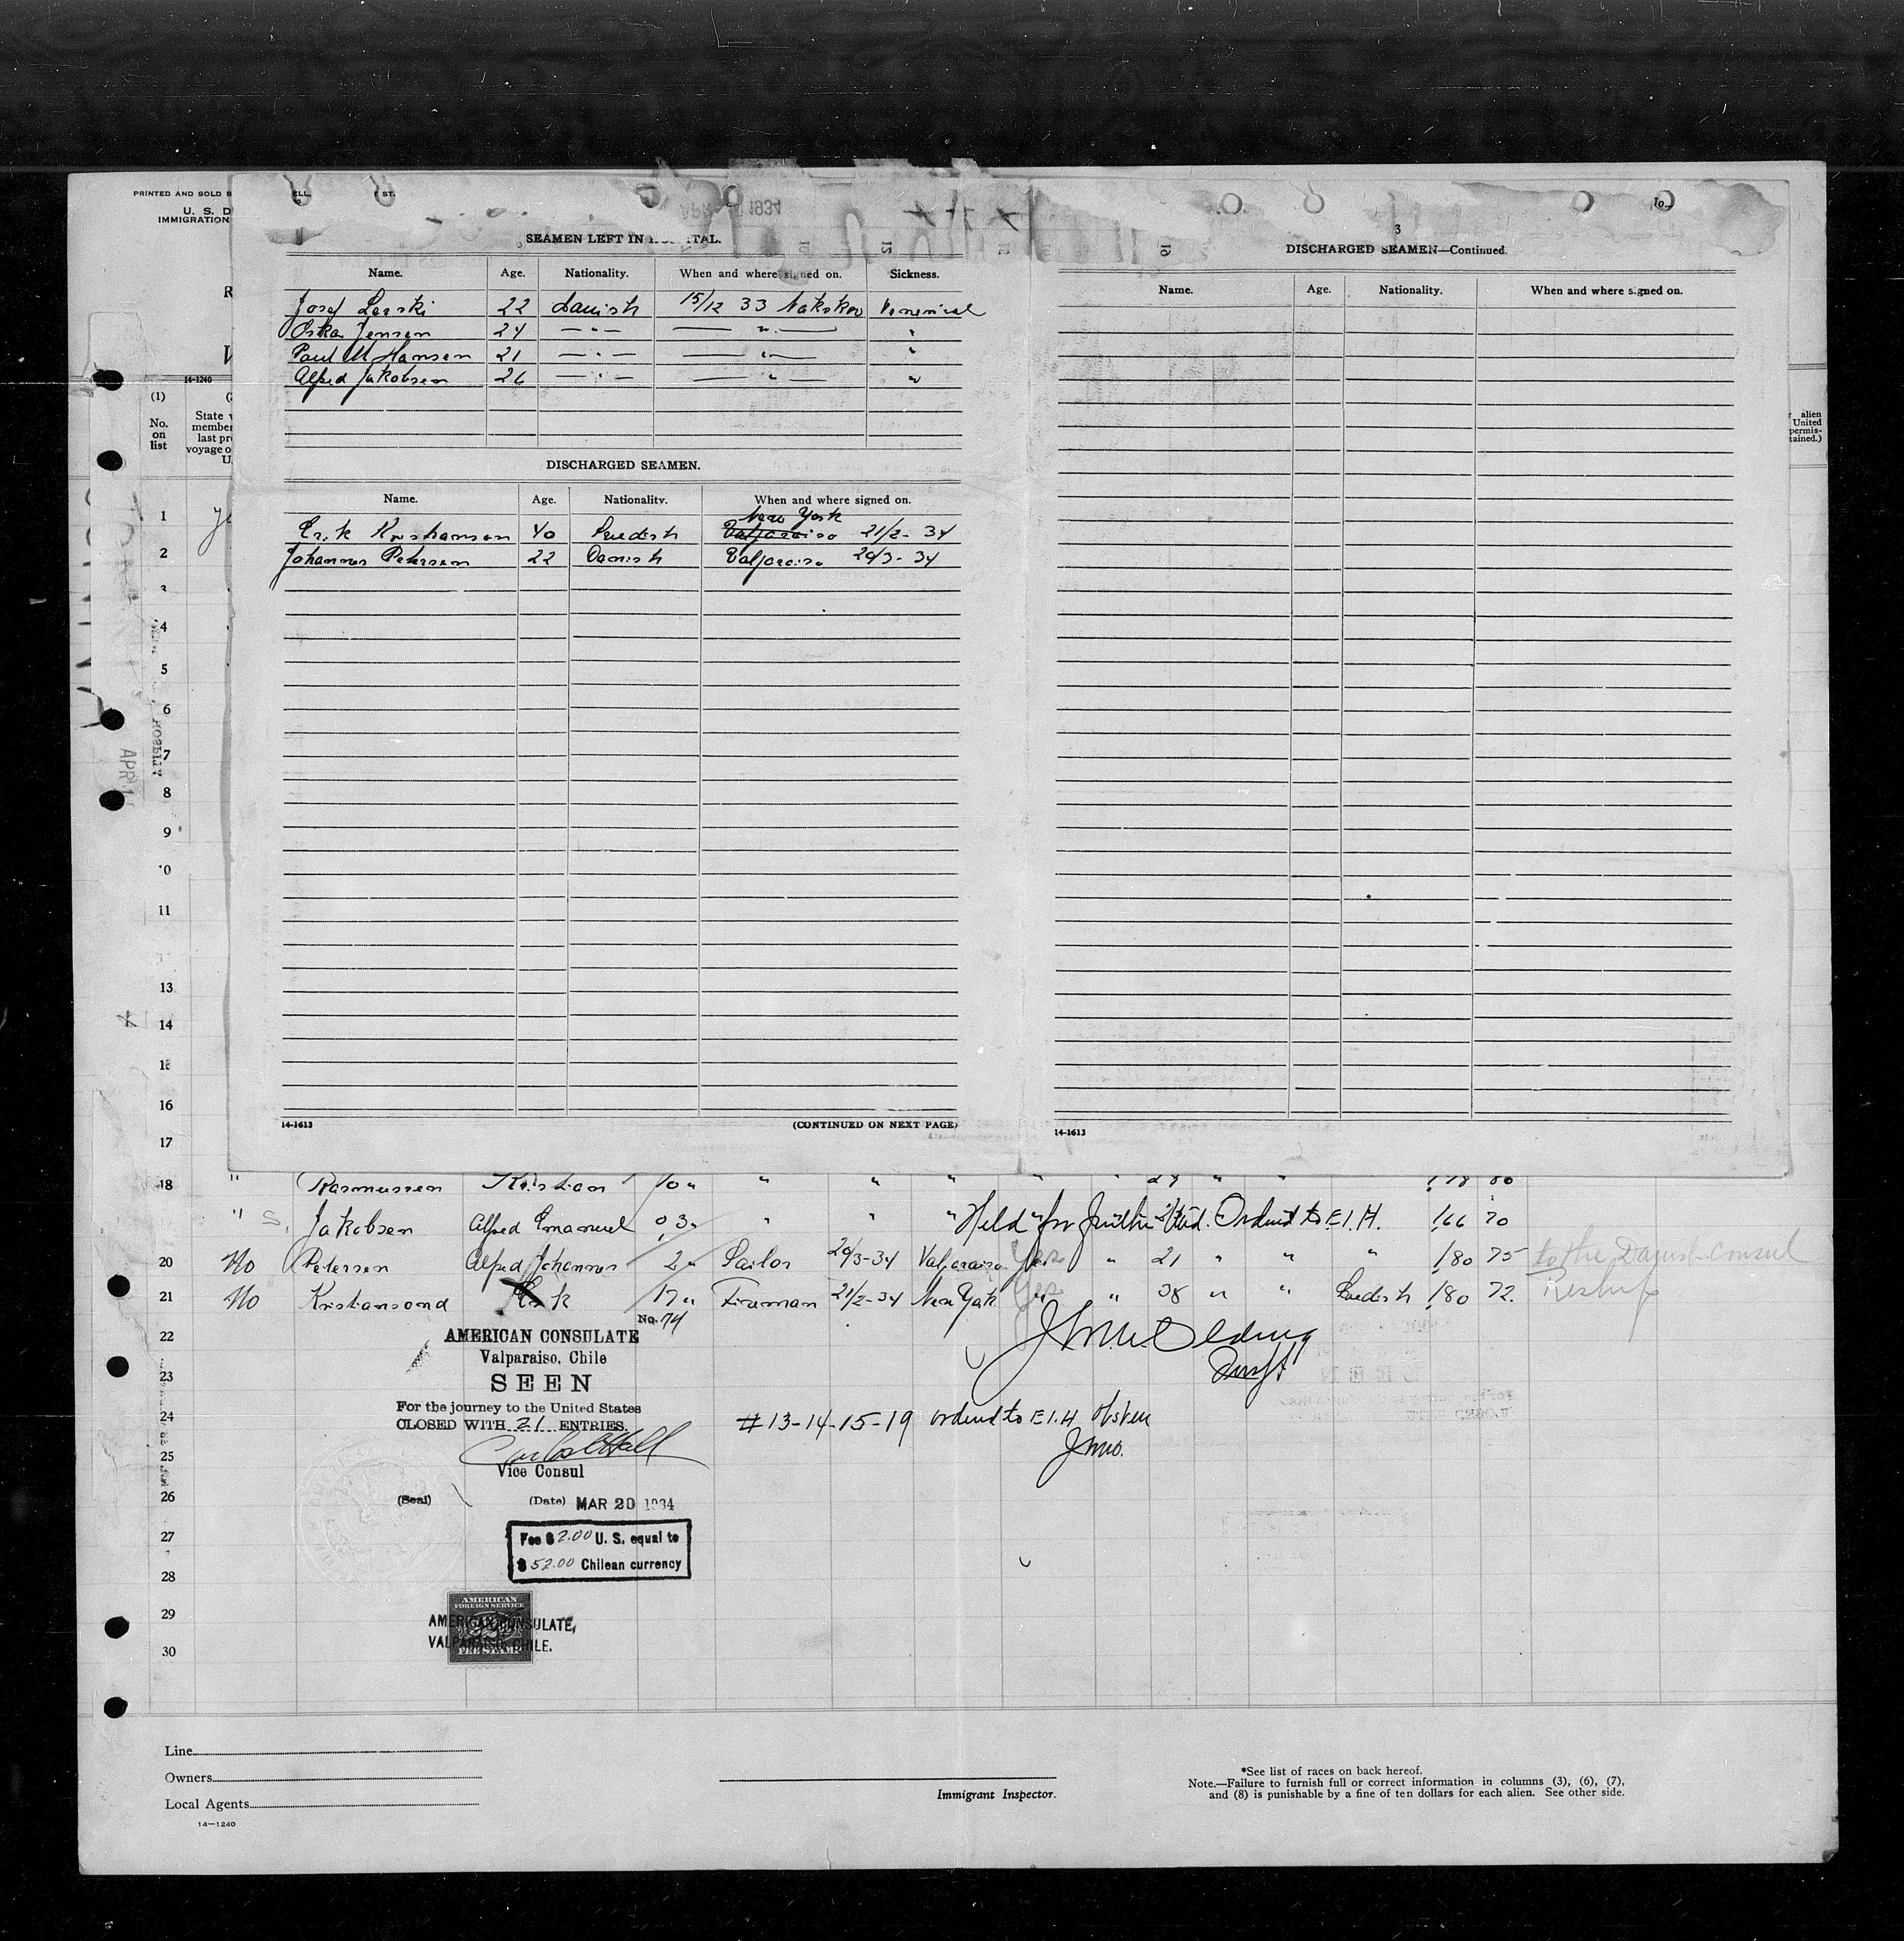 PRINTED AND SOLD B
ELL.
ST.
U. S. D
IMMIGRATION
1934
SEAMEN LEFT IN
TAL.
Name. Age. Nationality. When and where signed on. Sickness.
Josef 22 Danish 15/12 33 Nakskov Venerical
Oska Jensen 24 — " — — " — "
Paul M Hansen 21 — " — — " — "
Alfred Jakobsen 26 — " — — " — "
DISCHARGED SEAMEN.
Name. Age. Nationality. When and where signed on.
New York
Erik Kristiansen 40 Swedish Valparaiso 21/2- 34
Johannes Petersen 22 Danish Valparaiso 20/3- 34
14-1613
(CONTINUED ON NEXT PAGE)
3
DISCHARGED SEAMEN—Continued.
Name. Age. Nationality. When and where signed on.
14-1613
14-1240
(1)
No.
on
list
State
member
last pr
voyage o
U.
r alien
United
permis-
tained.)
1
2
4
5
6
7
8
9
11
13
14
15
16
17
18 " Rasmussen Kristian 10 " " " " " 29 " " 178 80
" S. Jakobsen Alfred Emanuel 3 " " " " Held for further Ordered to E.I.H. 166 70
20 No Petersen Alfred Johannes 2 " Sailor 20/3-34 Valparaiso Yes " 21 " " " 180 75 to the Danish Consul
21 No Kristiansond Erik 17 " Fireman 21/2-34 New York Yes " 38 " " Swedish 180 72. Reship
22
23
24
25
26
27
28
29
30
No. 74
AMERICAN CONSULATE
Valparaiso, Chile
SEEN
For the journey to the United States
CLOSED WITH 21 ENTRIES.
Vice Consul
(Seal)
(Date) MAR 20 1934
Insp't
#13-14-15-19 ordered to E.I.H.
Fee $ 2.00 U. S. equal to
$ 52.00 Chilean currency
AMERICAN
FOREIGN SERVICE
FEE STAMP
AMERICAN CONSULATE,
VALPARAISO, CHILE.
Line
Owners
Local Agents
14—1240
Immigrant Inspector.
*See list of races on back hereof.
Note.—Failure to furnish full or correct information in columns (3), (6), (7),
and (8) is punishable by a fine of ten dollars for each alien. See other side.